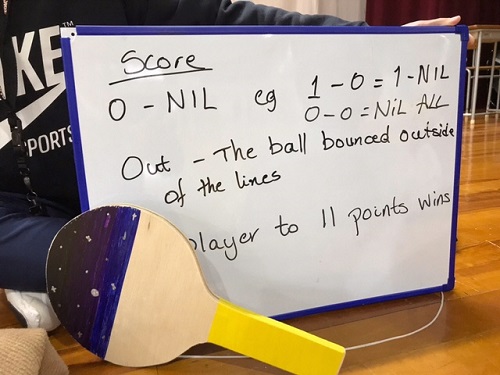 Score
0 - NIL eg 1 - 0 = 1 - NIL
0 - 0 = NiL ALL
Out - The ball bounced outside
of the lines
player to 11 points wins
KE
PORTS
TM